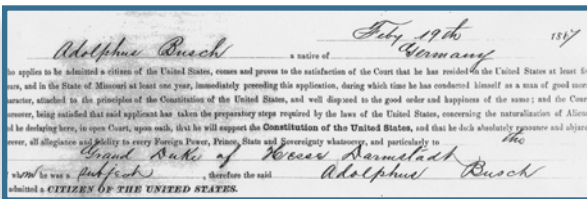 Feby 19th 1867
Adolphus Busch a native of Germany
ho applies to be admitted a citizen of the United States, comes and proves to the satisfaction of the Court that he has resided in the United States at least fi
ears, and in the State of Missouri at least one year, immediately preceding this application, during which time he has conducted himself as a man of good mora
haracter, attached to the principles of the Constitution of the United States, and well disposed to the good order and happiness of the same; and the Cour
oreover, being satisfied that said applicant has taken the preparatory steps required by the laws of the United States, concerning the naturalization of Alien
nd he declaring here, in open Court, upon oath, that he will support the Constitution of the United States, and that he doth absolutely renounce and abjur
orever, all allegiance and fidelity to every Foreign Power, Prince, State and Sovereignty whatsoever, and particularly to the
Grand Duke of Hesse Darmstadt
f whom he was a subject, therefore the said Adolphus Busch
admitted a CITIZEN OF THE UNITED STATES.